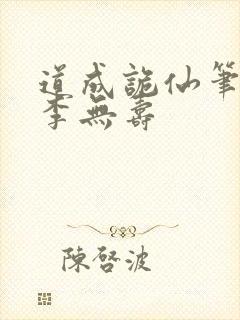 道成詭仙筆
李無壽
陳啓波